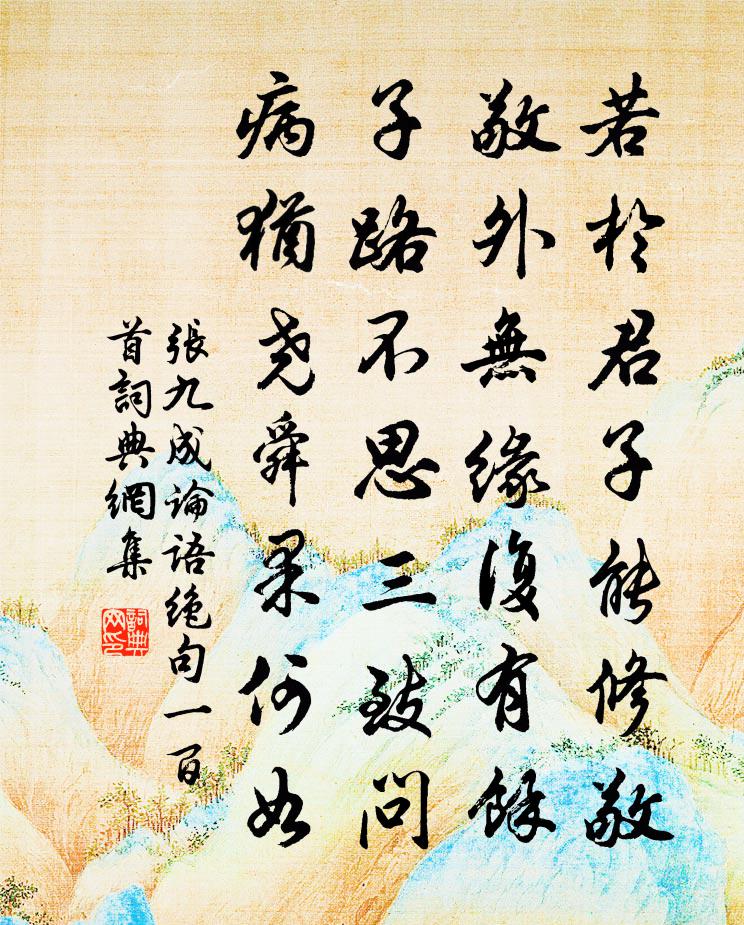 若於君子能修敬
敬外無緣復有餘
子路不思三致問
病猶堯舜果何如
張九成論語絕句一百
首詞典網集
詞典網印